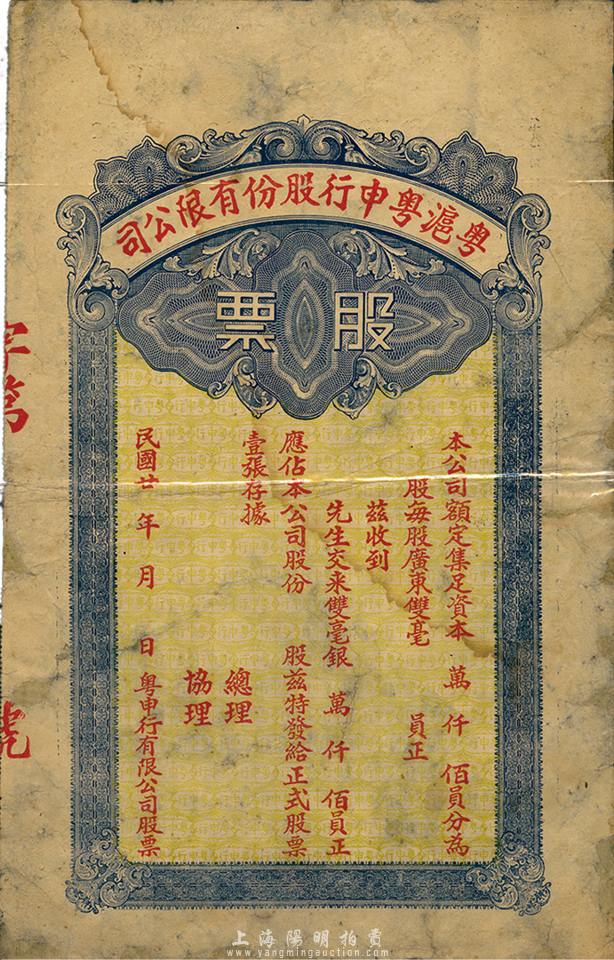 粤滬粤申行股份有限公司
股票
本公司額定集足資本　萬　仟　佰員分為
股每股廣東雙毫　員正
茲收到
先生交来雙毫銀　萬　仟　佰員正
應佔本公司股份　股茲特發給正式股票
壹張存據
總理
協理
民國廿　年　月　日　粤申行有限公司股票
字第
號
上海陽明拍賣
www.yangmingauction.com